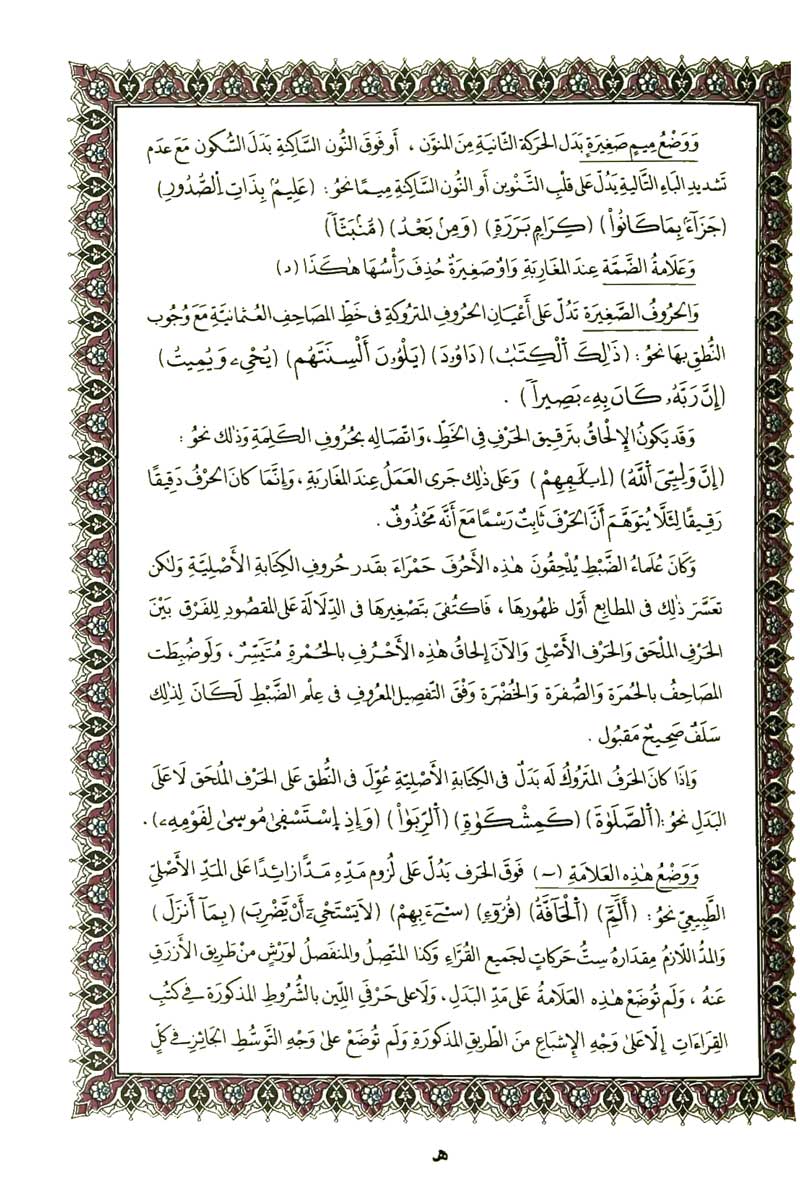 وَوَضْعُ مِيمٍ صَغِيرَةٍ بَدَلَ الحَرَكَةِ الثَّانِيَةِ مِنَ المُنَوَّنِ ، أَو فَوْقَ النُّونِ السَّاكِنَةِ بَدَلَ السُّكُونِ مَعَ عَدَمِ
تَشْدِيدِ البَاءِ التَّالِيَةِ يَدُلُّ عَلَى قَلْبِ التَّنْوِينِ أَوِ النُّونِ السَّاكِنَةِ مِيمًا نَحْوُ : (عَلِيمُۢ بِذَاتِ اِلصُّدُورِ)
(جَزَآءَۢ بِمَا كَانُواْ) (كِرَامِۢ بَرَرَةٖ) (وَمِنۢ بَعْدُ) (مُّنۢبَثّاٗ)
وَعَلَامَةُ الضَّمَّةِ عِندَ المَغَارِبَةِ وَاوٌ صَغِيرَةٌ حُذِفَ رَأْسُهَا هَـٰكَذَا (د)
وَالحُرُوفُ الصَّغِيرَةُ تَدُلُّ عَلَى أَعْيَانِ الحُرُوفِ المَتْرُوكَةِ فِى خَطِّ المَصَاحِفِ العُثمَانِيَّةِ مَعَ وُجُوبِ
النُّطْقِ بِهَا نَحْوُ : (ذَٰلِكَ اَ۬لْكِتَٰبُ) (دَاوُۥدَ) (يَلْوُۥنَ أَلْسِنَتَهُم) (يُحْيِۦ وَيُمِيتُ)
(إِنَّ رَبَّهُۥ كَانَ بِهِۦ بَصِيراٗ) .
وَقَد يَكُونُ الإِلحَاقُ بِتَرقِيقِ الحَرْفِ فِى الخَطِّ ، وَاتِّصَالِهِ بِحُرُوفِ الكَلِمَةِ وَذَٰلِكَ نَحْوُ :
(إِنَّ وَلِـِّۧىَ اَ۬للَّهُ) (إۦلَٰفِهِمْ) وَعَلَى ذَٰلِكَ جَرَى العَمَلُ عِندَ المَغَارِبَةِ ، وَإِنَّمَا كَانَ الحَرْفُ دَقِيقًا
رَقِيقًا لِئَلَّا يُتَوَهَّمَ أَنَّ الحَرْفَ ثَابِتٌ رَسْمًا مَعَ أَنَّهُ مَحْذُوفٌ .
وَكَانَ عُلَمَاءُ الضَّبْطِ يُلْحِقُونَ هَـٰذِهِ الأَحرُفَ حَمْرَاءَ بِقَدرِ حُرُوفِ الكِتَابَةِ الأَصْلِيَّةِ وَلَـٰكِن
تَعَسَّرَ ذَٰلِكَ فِى المَطَابِعِ أَوَّلَ ظُهُورِهَا ، فَاكتُفِىَ بِتَصْغِيرِهَا فِى الدِّلَالَةِ عَلَى المَقصُودِ لِلفَرْقِ بَيْنَ
الحَرْفِ المُلْحَقِ وَالحَرْفِ الأَصْلِىِّ وَالآنَ إِلحَاقُ هَـٰذِهِ الأَحْرُفِ بِالحُمْرَةِ مُتَيَسِّرٌ ، وَلَو ضُبِطَت
المَصَاحِفُ بِالحُمرَةِ وَالصُّفرَةِ وَالخُضْرَةِ وَفْقَ التَّفصِيلِ المَعرُوفِ فِى عِلْمِ الضَّبْطِ لَكَانَ لِذَٰلِكَ
سَلَفٌ صَحِيحٌ مَقبُول .
وَإِذَا كَانَ الحَرفُ المَتْرُوكُ لَهُ بَدَلٌ فِى الكِتَابَةِ الأَصْلِيَّةِ عُوِّلَ فِى النُّطْقِ عَلَى الحَرْفِ المُلحَقِ لَا عَلَى
البَدَلِ نَحْوُ : (اَ۬لصَّلَوٰةَ) (كَمِشْكَوٰةٖ) (اَ۬لرِّبَوٰاْ) (وَإِذِ اِ۪سْتَسْقىٰ مُوسىٰ لِقَوْمِهِۦ) .
وَوَضْعُ هَـٰذِهِ العَلَامَةِ (~) فَوْقَ الحَرفِ يَدُلُّ عَلَى لُزُومِ مَدِّهِ مَدًّا زَائِدًا عَلَى المَدِّ الأَصْلِىِّ
الطَّبِيعِيِّ نَحْوُ : (أَلَٓمِّٓ) (اَ۬لْحَآقَّةُ) (قُرُوٓءٖ) (سِےٓءَ بِهِمْ) (لَا يَسْتَحْيِۦٓ أَنْ يَّضْرِبَ) (بِمَآ أَنزَلَ)
وَالمَدُّ اللَّازِمُ مِقدَارُهُ سِتُّ حَرَكَاتٍ لِجَمِيعِ القُرَّاءِ وَكَذَا المُتَّصِلُ وَالمُنفَصِلُ لِوَرْشٍ مِنْ طَرِيقِ الأَزْرَقِ
عَنهُ ، وَلَم تُوضَعْ هَـٰذِهِ العَلَامَةُ عَلَى مَدِّ البَدَلِ ، وَلَا عَلَى حَرْفَيِ اللِّينِ بِالشُّرُوطِ المَذكُورَةِ فِى كُتُبِ
القِرَاءَاتِ إِلَّا عَلَىٰ وَجْهِ الإِشبَاعِ مِنَ الطَّرِيقِ المَذكُورَةِ وَلَم تُوضَعْ عَلَىٰ وَجْهِ التَّوَسُّطِ الجَائِزِ فِى كُلٍّ
هـ